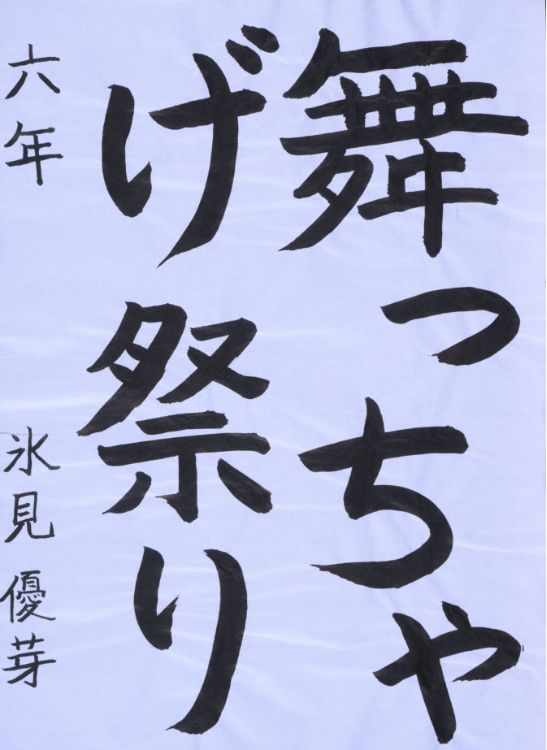 舞っちゃ
げ祭り
六年 氷見優芽